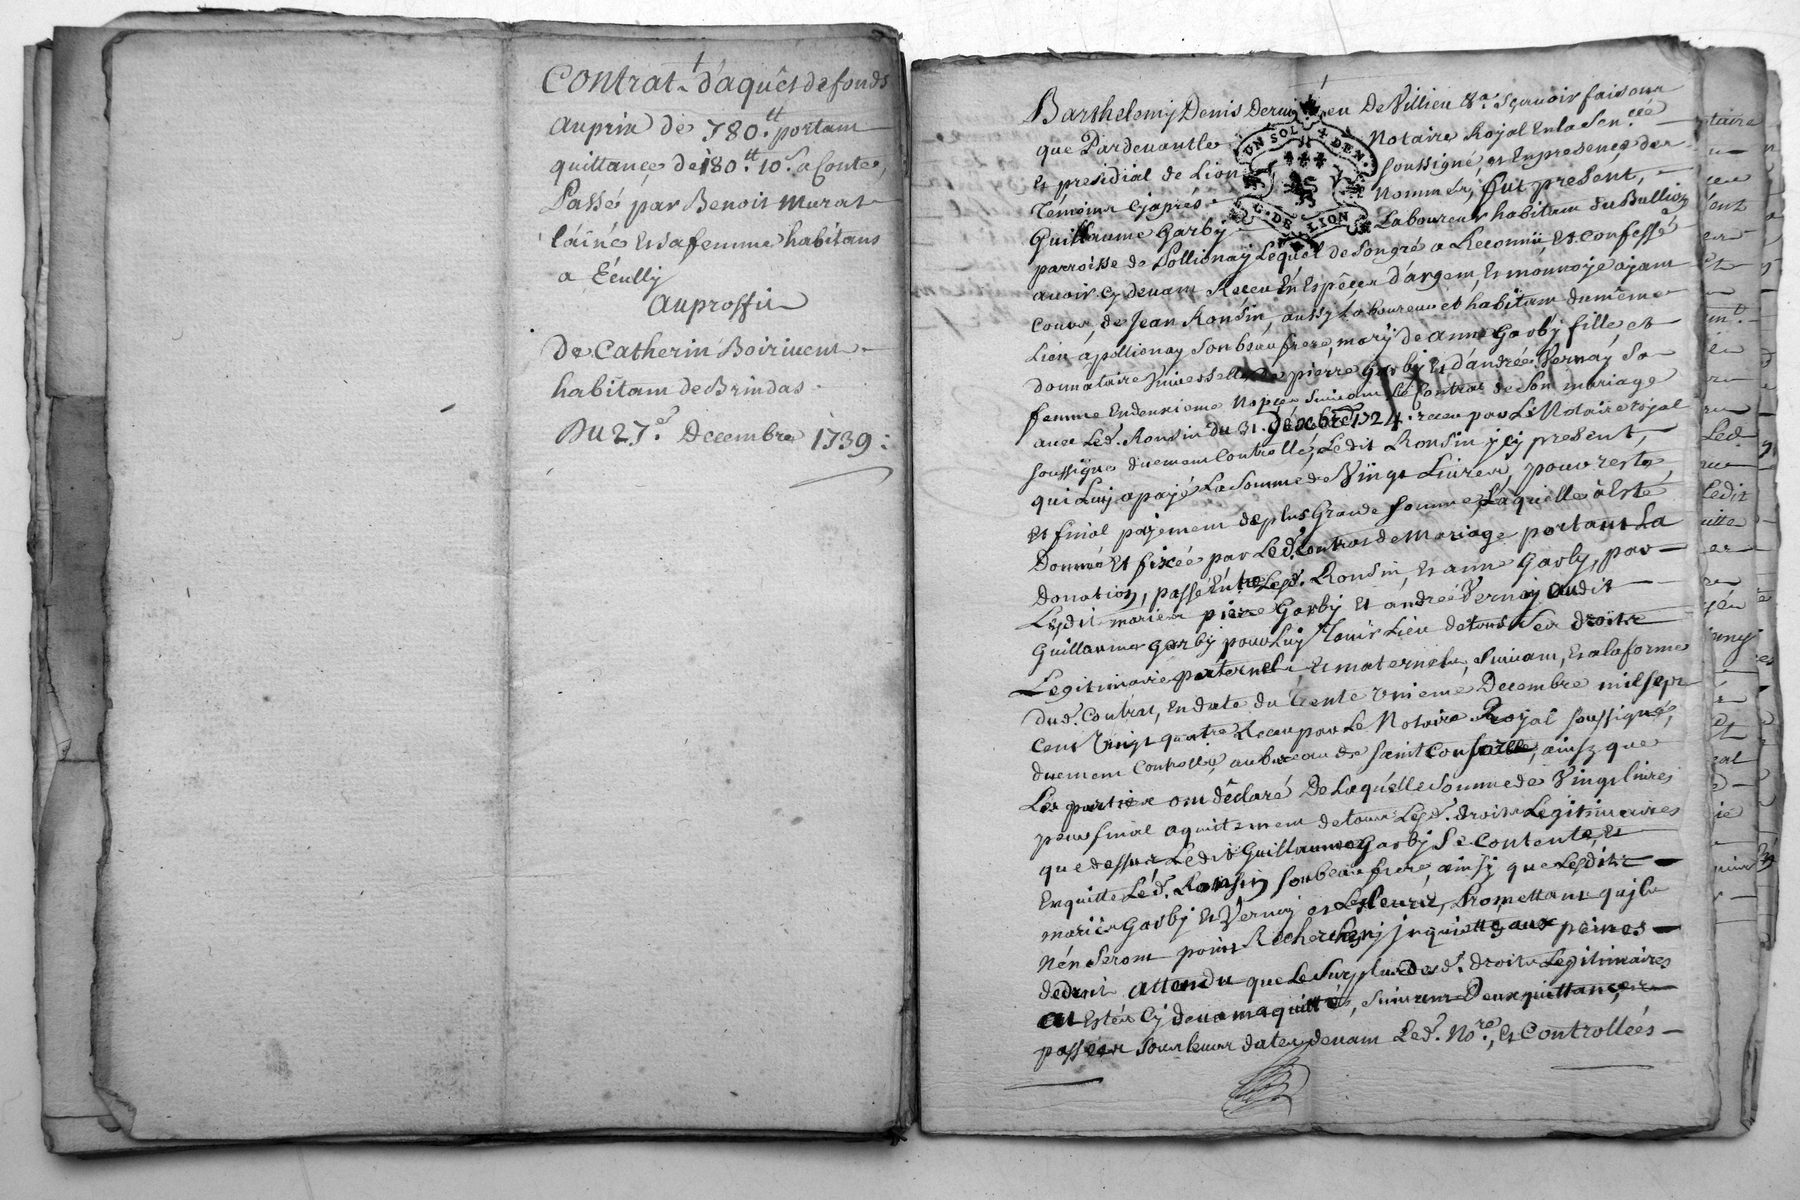 Contrat d'aquêt de fonds
au prix de 780.tt portant
quittance de 180.tt 10.s a Conte,
Passé par Benoit Murat
l'aîné et sa femme habitans
a Ecully
au proffit
De Catherin Boiriuent
habitant de Brindas.
Du 27.e Decembre 1739:
Barthelemy Denis De Villieu &a. Sçauoir faisons
que Pardeuant le Notaire Royal en la Sen.cée
et presidial de Lion soussigné et en presence des
Témoins cy après nommés, fut présent,
UN SOL DEN.
G. DE LION
Guillaume Garby Laboureur habitant du Bullion
parroisse de Pollionay Lequel de son gré a Reconnü et confessé
auoir cy deuant Receu en Espéces d'argent, et monnoye ayant
cours, de Jean Ronsin, aussy Laboureur et habitant du même
Lieu, a pollionay son beau frere, mary de anne Garby fille et
donnataire Vniuerselle de pierre Garby et d'andrée Vernay sa
femme en deuxieme nopces suiuant Le Contrat de son mariage
auec Led. Ronsin du 31. Décbre 1724. receu par Le Notaire royal
soussigné duement Controllé, Ledit Ronsin icy present,
qui Luy a payé La Somme de Vingt Liures, pour reste,
et final payement de plus Grande somme Laquelle a Esté
Donnée et fixée par Led. Contrat de Mariage portant La
Donation, passé Entre Lesd. Ronsin, et anne Garby, par
Lesdits mariés pierre Garby et andrée Vernay audit
Guillaume Garby pour Luy Tenir Lieu de tous Ses droits
Legitimaire paternels, et maternels, suiuant, et a la forme
dud. Contrat, En date du trente vnieme Decembre mil sept
cent Vingt quatre Receu par Le Notaire Royal soussigné,
duement Controllé, au bureau de saint Consorce, ainsy que
Les parties ont déclaré De Laquelle somme de Vingt liures
pour final aquittement de tous Lesd. droits Legitimaires
que dessus Ledit Guillaume Garby Se Contente, et
en quitte Led. Ronsin son beau frere, ainsy que Lesdits
mariés Garby et Vernay et Les leurs, Promettant qu'ils
n'en seront point Recherchés ny inquietté aux peines
de droit attendu que Le surplus desd. droits Legitimaires
ont Estés cy deuant aquittés, suiuant Deux quittances
passées sous leurs dates deuant Led. No.re, et Controllées